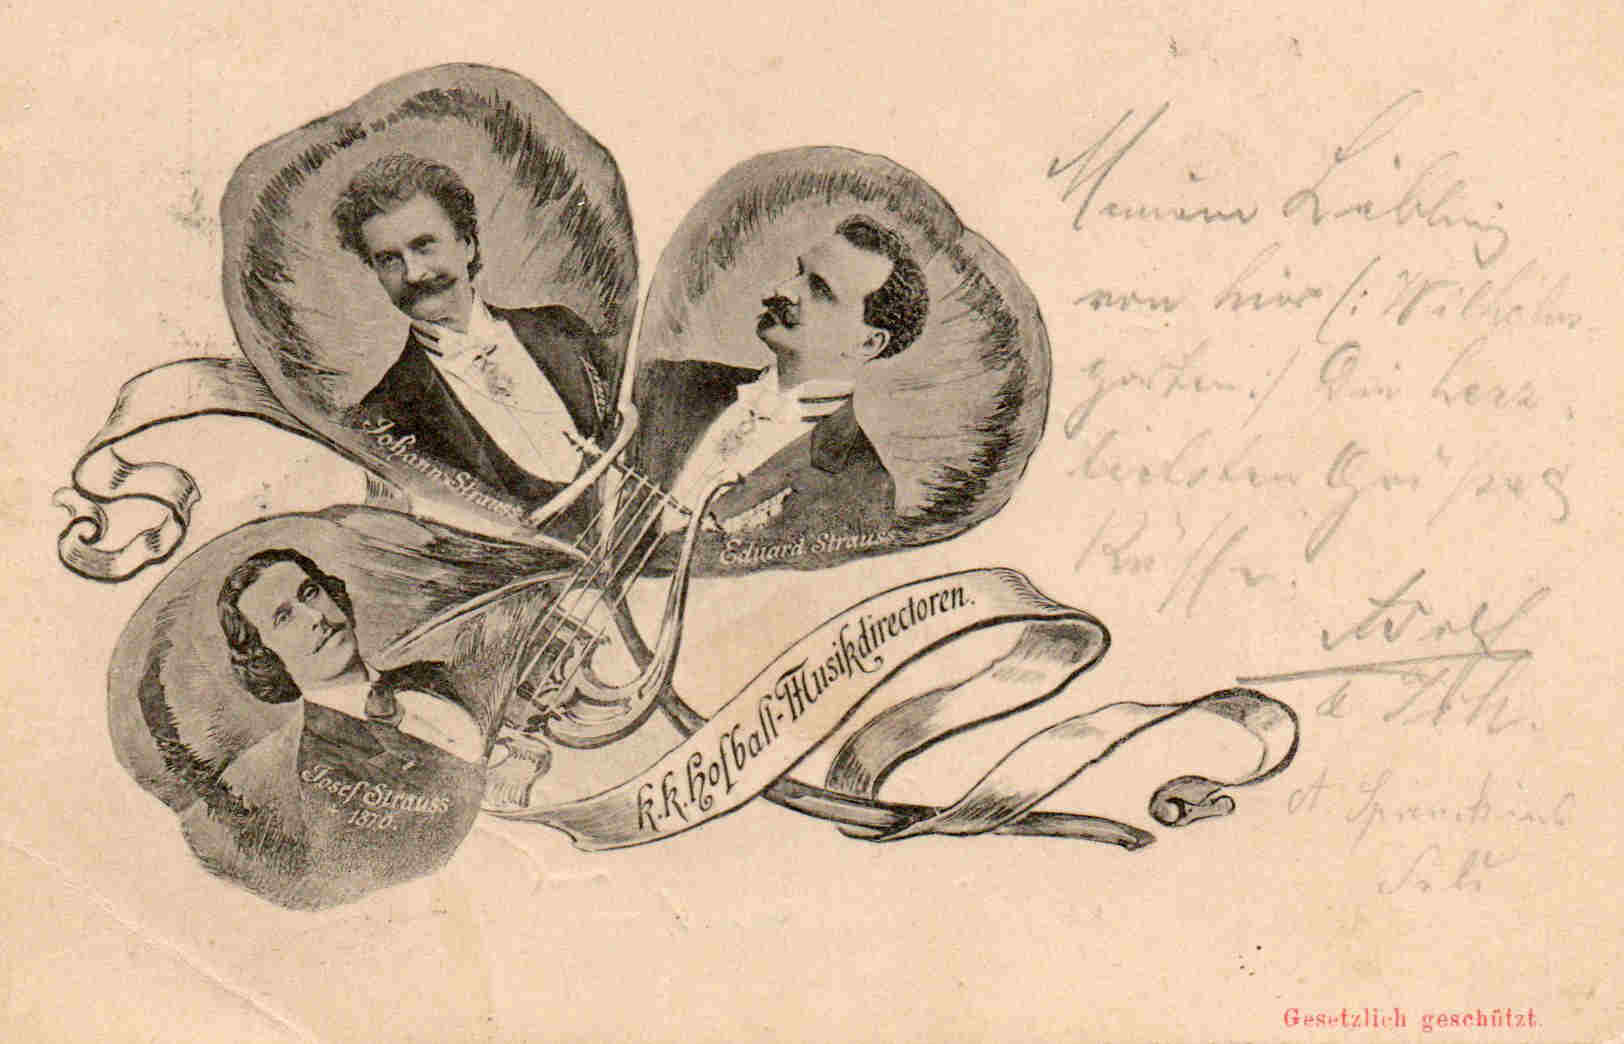 Johann Strauss
Eduard Strauss
Josef Strauss
1870.
k.k. Hofball-Musikdirectoren.
Meinem Liebling
von hier (: Wilhelms
garten :) Die herz
lichsten Grüße &
Küsse.
Adolf
Gesetzlich geschützt.